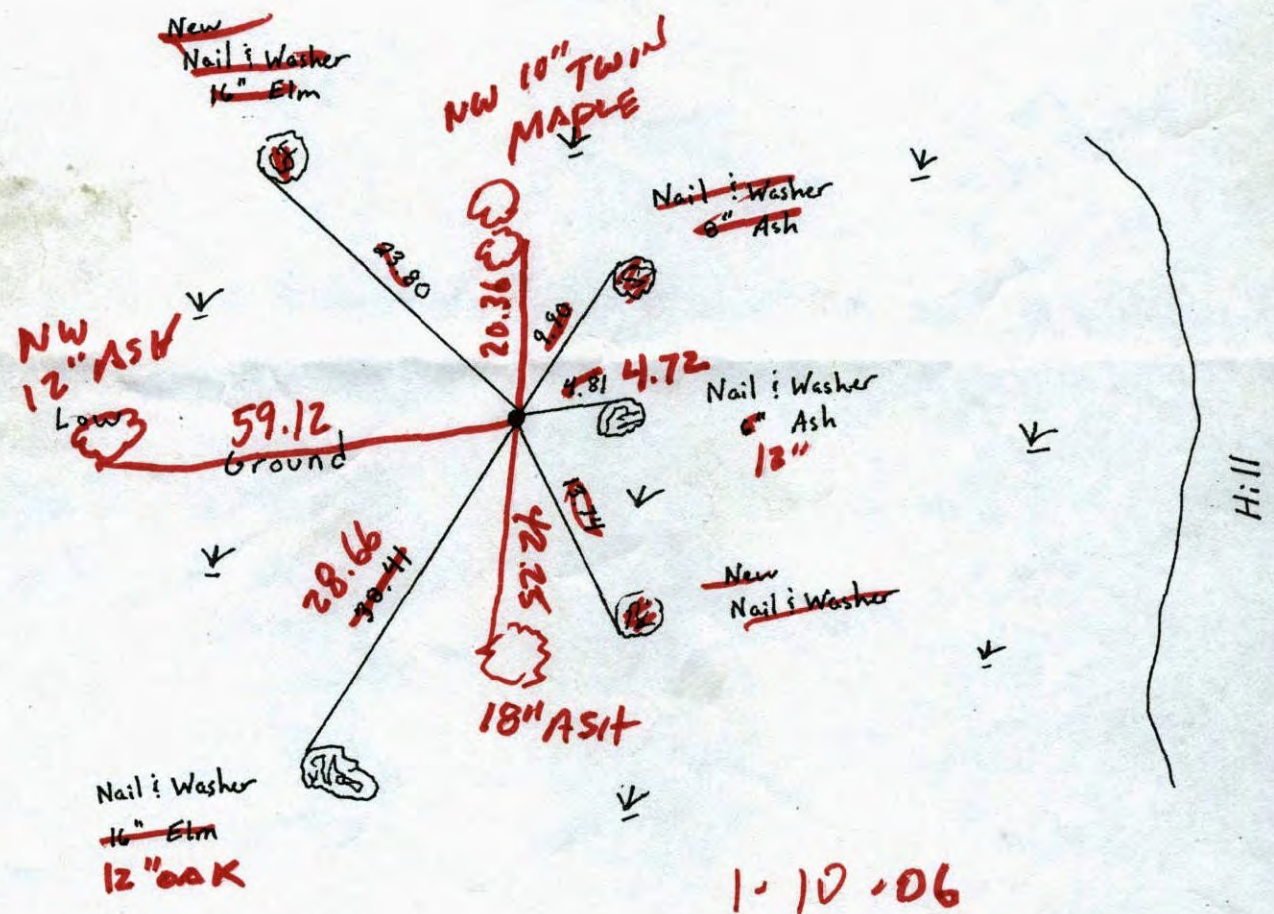 New
Nail & Washer
16" Elm
NW 10" TWIN
MAPLE
Nail & Washer
8" Ash
23.80
20.36
9.90
NW
12" ASH
Low
59.12
Ground
4.81 4.72
Nail & Washer
6" Ash
12"
Hill
13.74
28.66
30.41
52.25
New
Nail & Washer
18" ASH
Nail & Washer
16" Elm
12" OAK
1.10.06